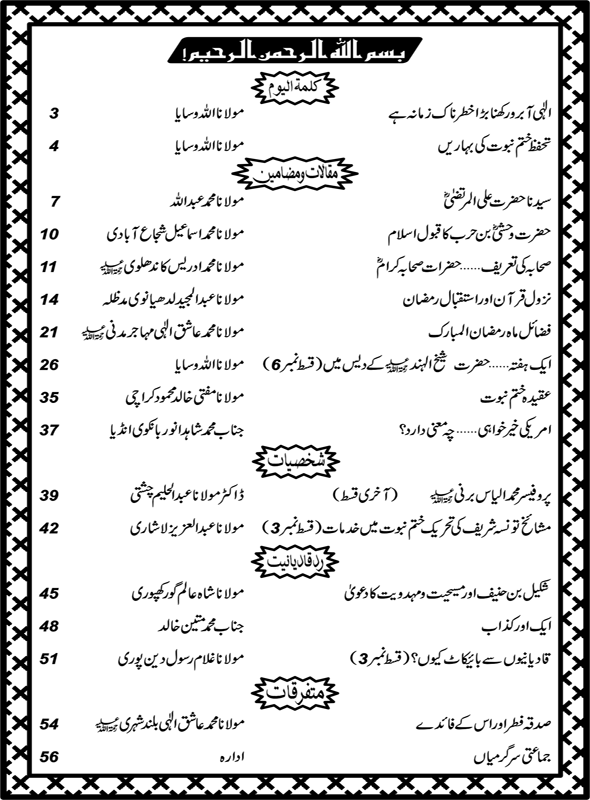 بسم اللہ الرحمن الرحیم!
کلمۃ الیوم
الٰہی آبرو رکھنا بڑا خطرناک زمانہ ہے مولانا اللہ وسایا 3
تحفظ ختم نبوت کی بہاریں مولانا اللہ وسایا 4
مقالات ومضامین
سیدنا حضرت علی المرتضیٰؓ مولانا محمد عبداللہ 7
حضرت وحشیؓ بن حرب کا قبول اسلام مولانا محمد اسماعیل شجاع آبادی 10
صحابہ کی تعریف......حضرات صحابہ کرامؓ مولانا محمد ادریس کاندھلوی رحمۃ اللہ علیہ 11
نزول قرآن اور استقبال رمضان مولانا عبدالمجید لدھیانوی مدظلہ 14
فضائل ماہ رمضان المبارک مولانا محمد عاشق الٰہی مہاجر مدنی رحمۃ اللہ علیہ 21
ایک ہفتہ......حضرت شیخ الہند رحمۃ اللہ علیہ کے دیس میں (قسط نمبر 6) مولانا اللہ وسایا 26
عقیدہ ختم نبوت مولانا مفتی خالد محمود کراچی 35
امریکی خیر خواہی......چہ معنی دارد؟ جناب محمد شاہد انور بانکوی انڈیا 37
شخصیات
پروفیسر محمد الیاس برنی رحمۃ اللہ علیہ (آخری قسط) ڈاکٹر مولانا عبدالحلیم چشتی 39
مشائخ تونسہ شریف کی تحریک ختم نبوت میں خدمات (قسط نمبر 3) مولانا عبدالعزیز لاشاری 42
رد قادیانیت
شکیل بن حنیف اور مسیحیت و مہدویت کا دعویٰ مولانا شاہ عالم گورکھپوری 45
ایک اور کذاب جناب محمد متین خالد 48
قادیانیوں سے بائیکاٹ کیوں؟ (قسط نمبر 3) مولانا غلام رسول دین پوری 51
متفرقات
صدقہ فطر اور اس کے فائدے مولانا محمد عاشق الٰہی بلند شہری رحمۃ اللہ علیہ 54
جماعتی سرگرمیاں ادارہ 56